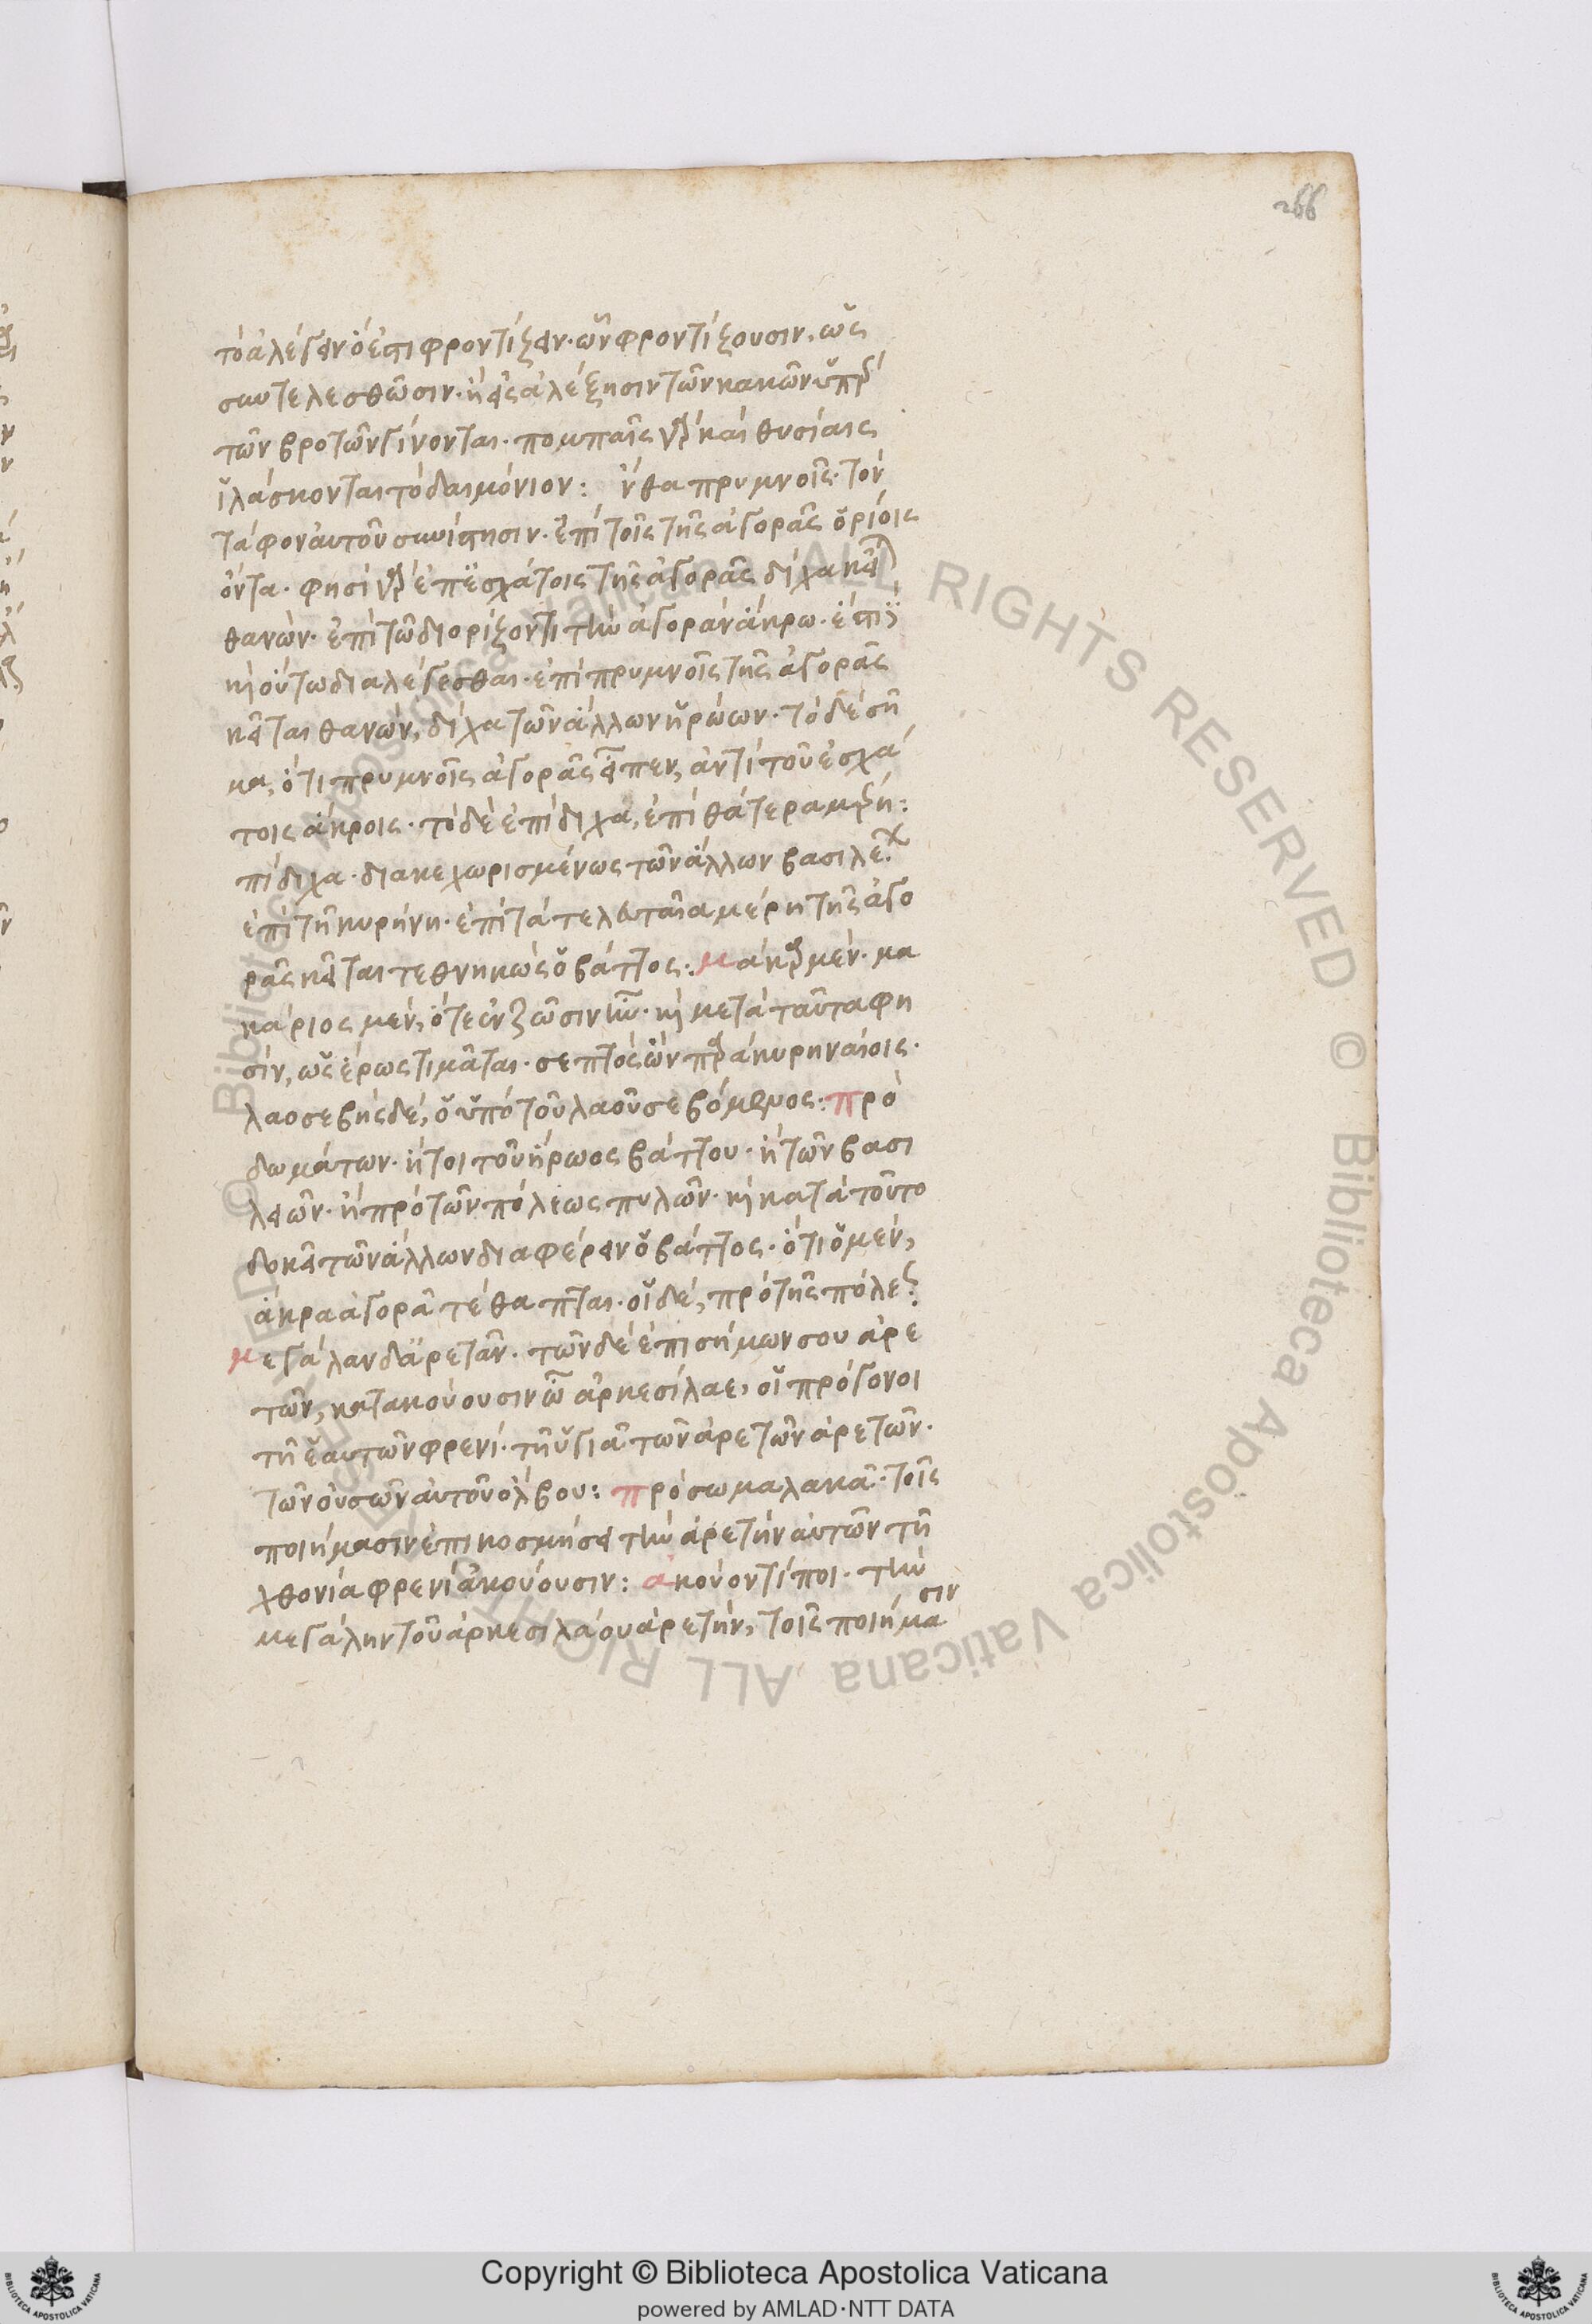 266
τὸ ἀλέγειν ὅ ἐστι φροντίζειν. ὧν φροντίζουσιν, ὡς
συντελεσθῶσιν. ἢ εἰς ἀλέξησιν τῶν κακῶν ὑπὲρ
τῶν βροτῶν γίνονται. πομπαῖς γὰρ καὶ θυσίαις
ἱλάσκονται τὸ δαιμόνιον: ἔνθα πρυμνοῖς. τὸν
τάφον αὐτοῦ συνίστησιν. ἐπὶ τοῖς τῆς ἀγορᾶς ὁρίοις
ὄντα. φησὶ γὰρ ἐπ' ἐσχάτοις τῆς ἀγορᾶς δίχα κεῖται
θανών. ἐπὶ τῶ διορίζοντι τὴν ἀγορὰν ἄκρω. ἔστι
καὶ οὕτω διαλέγεσθαι. ἐπὶ πρυμνοῖς τῆς ἀγορᾶς
κεῖται θανών, δίχα τῶν ἄλλων ἡρώων. τὸ δὲ ση
κα, ὅτι πρυμνοῖς ἀγορᾶς εἶπεν, ἀντὶ τοῦ ἐσχά
τοις ἄκροις. τὸ δὲ ἐπὶ δίχα, ἐπὶ θάτερα μέρη:
πὶ δίχα. διακεχωρισμένως τῶν ἄλλων βασιλέων
ἐπὶ τῆ κυρήνη. ἐπὶ τὰ τελευταῖα μέρη τῆς ἀγο
ρᾶς κεῖται τεθνηκὼς ὁ βάττος: μάκαρ μέν. μα
κάριος μέν, ὅτε ἐν ζῶσιν ἦν. καὶ μετὰ ταῦτα φη
σίν, ὡς ἥρως τιμᾶται. σεπτὸς ὢν παρὰ κυρηναίοις.
λαοσεβὴς δέ, ὁ ὑπὸ τοῦ λαοῦ σεβόμενος: πρὸ
δωμάτων. ἤτοι τοῦ ἥρωος βάττου. ἢ τῶν βασι
λειῶν. ἢ πρὸ τῶν πόλεως πυλῶν. καὶ κατὰ τοῦτο
δοκεῖ τῶν ἄλλων διαφέρειν ὁ βάττος. ὅτι ὁ μέν,
ἄκρα ἀγορᾶ τέθαπται. οἱ δέ, πρὸ τῆς πόλεως:
μεγάλαν δ' ἀρετάν. τῶν δὲ ἐπισήμων σου ἀρε
τῶν, κατακούουσιν ὦ ἀρκεσίλαε, οἱ πρόγονοι
τῆ ἑαυτῶν φρενί. τῆ ὑγιᾶ τῶν ἀρετῶν ἀρετῶν.
τῶν οὐσῶν αὐτοῦ ὄλβου: πρόσω μαλακᾶ. τοῖς
ποιήμασιν ἐπικοσμήσει τὴν ἀρετὴν αὐτῶν τῆ
χθονία φρενὶ ἀκούουσιν: ἀκούοντί ποι. τὴν
μεγάλην τοῦ ἀρκεσιλάου ἀρετήν, τοῖς ποιήμασιν
Copyright © Biblioteca Apostolica Vaticana
powered by AMLAD·NTT DATA